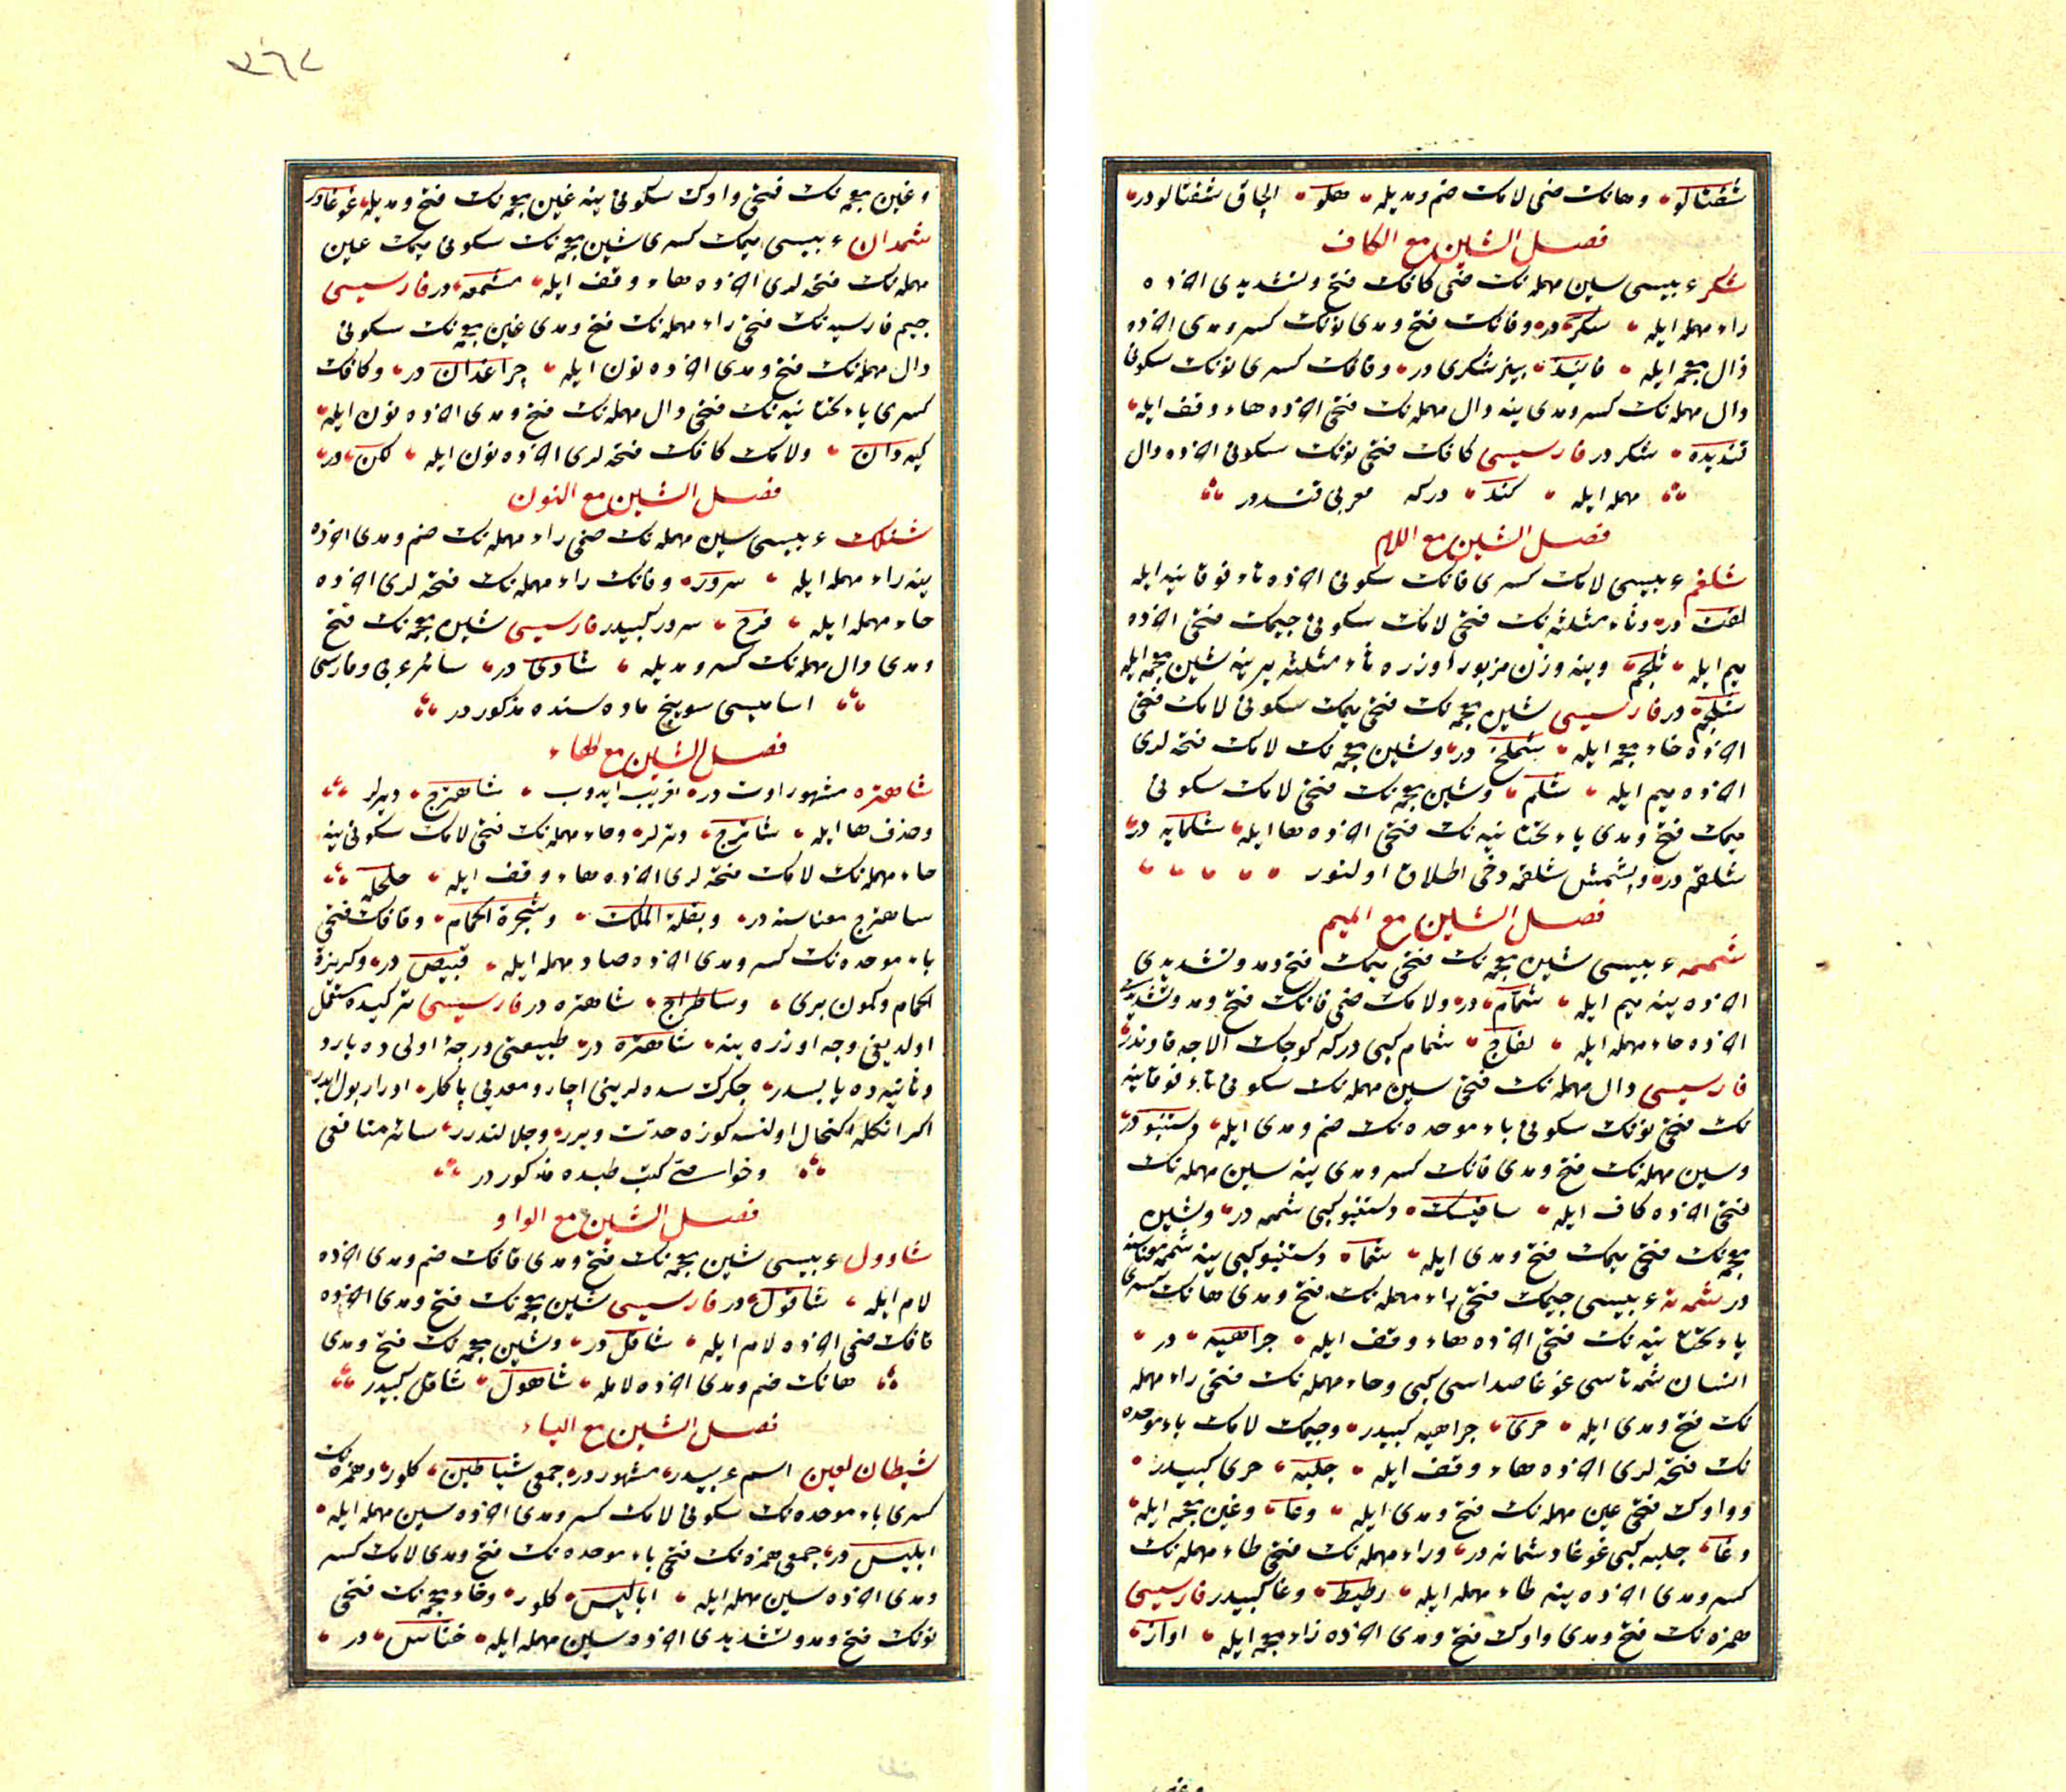 شفتالو و هانك ضمى لامك ضم و مديله هلو الجاق شفتالودر
فصل الشين مع الكاف
شكر عربيسى سين مهمله نك ضمى كافك فتح و تشديدى آخرنده
راء مهمله ايله سكر در و فانك فتح و مدى نونك كسر و مدى آخرنده
ذال معجمه ايله فانيذ بينر شكرى در و قافك كسرى نونك سكونى
دال مهمله نك كسر و مدى ينه دال مهمله نك فتحى آخرنده هاء وقف ايله
قنديده شكر در فارسيسى كافك فتحى نونك سكونى آخرنده دال
مهمله ايله كند دركه معربى قنددر
فصل الشين مع اللام
شلغم عربيسى لامك كسرى فانك سكونى آخرنده تاء فوقانيه ايله
لفت در و ثاء مثلثه نك فتحى لامك سكونى جيمك فتحى آخرنده
ميم ايله ثلجم و ينه وزن مزبور اوزره ثاء مثلثه يرينه شين معجمه ايله
شلجم در فارسيسى شين معجمه نك فتحى ميمك سكونى لامك فتحى
آخرنده خاء معجمه ايله شملخ در و شين معجمه نك لامك فتحه لرى
آخرنده ميم ايله شلم و شين معجمه نك فتحى لامك سكونى
ميمك فتح و مدى ياء تحتانيه نك فتحى آخرنده ها ايله شلمايه در
شلغم در و پشمش شلغمه دخى اطلاق اولنور
فصل الشين مع الميم
شمامه عربيسى شين معجمه نك فتحى ميمك فتح و مد و تشديدى
آخرنده ينه ميم ايله شمام در و لامك ضمى فانك فتح و مد و تشديدى
آخرنده حاء مهمله ايله لفاح شمام كبى دركه كوجك آلاجه قاوندر
فارسيسى دال مهمله نك فتحى سين مهمله نك سكونى تاء فوقانيه
نك فتحى نونك سكونى باء موحده نك ضم و مدى ايله دستنبو در
و سين مهمله نك فتح و مدى فانك كسر و مدى ينه سين مهمله نك
فتحى آخرنده كاف ايله سافيسك دستنبو كبى شمامه در و شين
معجمه نك فتحى ميمك فتح و مدى ايله شما دستنبو كبى ينه شمامه معناسنه
در شماته عربيسى جيمك فتحى راء مهمله نك فتح و مدى هانك كسرى
ياء تحتانيه نك فتحى آخرنده هاء وقف ايله جراهيه در
انسان شماتاسى غوغا صداسى كبى و حاء مهمله نك فتحى راء مهمله
نك فتح و مدى ايله حرى جراهيه كبيدر و جيمك لامك باء موحده
نك فتحه لرى آخرنده هاء وقف ايله جلبه حرى كبيدر
و واوك فتحى عين مهمله نك فتح و مدى ايله وعا و غين معجمه ايله
وغا جلبه كبى غوغا و شماته در و راء مهمله نك فتحى طاء مهمله نك
كسر و مدى آخرنده ينه طاء مهمله ايله رطيط وغا كبيدر فارسيسى
همزه نك فتح و مدى واوك فتح و مدى آخرنده زاء معجمه ايله آواز
٣٦٧
و غين معجمه نك فتحى واوك سكونى ينه غين معجمه نك فتح و مديله غوغا در
شمعدان عربيسى ميمك كسرى شين معجمه نك سكونى ميمك عين
مهمله نك فتحه لرى آخرنده هاء وقف ايله مشمعه در فارسيسى
جيم فارسيه نك فتحى راء مهمله نك فتح و مدى غين معجمه نك سكونى
دال مهمله نك فتح و مدى آخرنده نون ايله چراغدان در و كافك
كسرى ياء تحتانيه نك فتحى دال مهمله نك فتح و مدى آخرنده نون ايله
كيه دان و لامك كافك فتحه لرى آخرنده نون ايله لكن در
فصل الشين مع النون
شنلك عربيسى سين مهمله نك ضمى راء مهمله نك ضم و مدى آخرنده
ينه راء مهمله ايله سرور و فانك راء مهمله نك فتحه لرى آخرنده
حاء مهمله ايله فرح سرور كبيدر فارسيسى شين معجمه نك فتح
و مدى دال مهمله نك كسر و مديله شادى در سائر عربى و فارسى
اساميسى سوينج ماده سنده مذكور در
فصل الشين مع الهاء
شاهتره مشهور اوت در تعريب ايدوب شاهترج ديرلر
و حذف ها ايله شاترج ديرلر و حاء مهمله نك فتحى لامك سكونى ينه
حاء مهمله نك لامك فتحه لرى آخرنده هاء وقف ايله حلحله
شاهترج معناسنه در و بقلة الملك و شجرة الحمام و قافك فتحى
باء موحده نك كسر و مدى آخرنده صاد مهمله ايله قبيص در و كزبرة
الحمام و كمون برى و ساطراج شاهتره در فارسيسى تركيده مستعمل
اولديغى وجه اوزره ينه شاهتره در طبيعتى درجۀ اولى ده بارد
و ثانيه ده يابسدر جكرك سده لرينى آچار و معده يى پاكلر ادرار بول ايدر
اكر انكله اكتحال اولنسه كوزه حدت ويرر و جلالندرر سائر منافعى
و خواصى كتب طبده مذكور در
فصل الشين مع الواو
شاوول عربيسى شين معجمه نك فتح و مدى قافك ضم و مدى آخرنده
لام ايله شاقول در فارسيسى شين معجمه نك فتح و مدى آخرنده
قافك ضمى آخرنده لام ايله شاقل در و شين معجمه نك فتح و مدى
هانك ضم و مدى آخرنده لامله شاهول شاقل كبيدر
فصل الشين مع الياء
شيطان لعين اسم عربيدر مشهور در جمعى شياطين كلور و همزه نك
كسرى باء موحده نك سكونى لامك كسر و مدى آخرنده سين مهمله ايله
ابليس در جمعى همزه نك فتحى باء موحده نك فتح و مدى لامك كسر
و مدى آخرنده سين مهمله ايله اباليس كلور و خاء معجمه نك فتحى
نونك فتح و مد و تشديدى آخرنده سين مهمله ايله خناس در